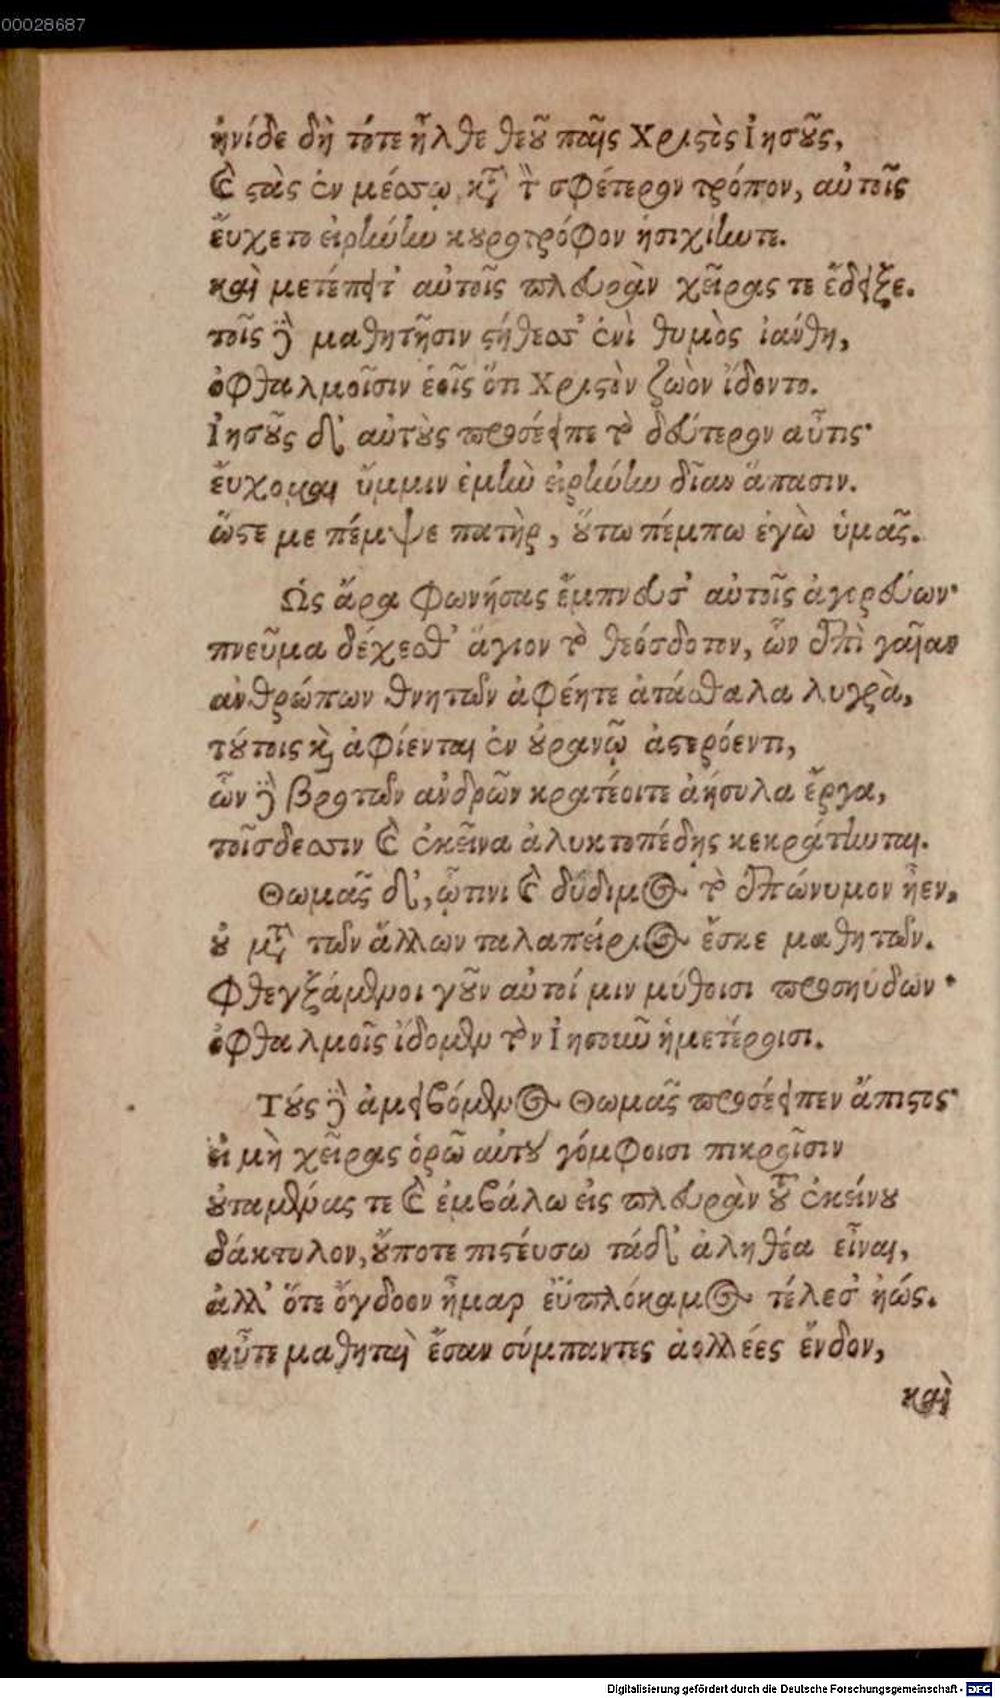 00028687
ἠνίδε δὴ τότε ἦλθε θεοῦ παῖς Χριστὸς Ἰησοῦς,
καὶ στὰς ἐν μέσσῳ κατὰ τὸν σφέτερον τρόπον, αὐτοῖς
εὔχετο εἰρήνην κουροτρόφον ἡσιχίηντε.
καὶ μετέπειτ' αὐτοῖς πλευρὰν χεῖρας τε ἔδειξε.
τοῖς δὲ μαθητῇσιν στήθεσσ' ἐνὶ θυμὸς ἰάνθη,
ὀφθαλμοῖσιν ἑοῖς ὅτι Χριστὸν ζωὸν ἴδοντο.
Ἰησοῦς δ' αὐτοὺς προσέειπε τὸ δεύτερον αὖτις·
εὔχομαι ὔμμιν ἐμὴν εἰρήνην δῖαν ἅπασιν.
ὥστε με πέμψε πατὴρ, οὕτω πέμπω ἐγὼ ὑμᾶς.
Ὡς ἄρα φωνήσας ἔμπνευσ' αὐτοῖς ἀγορεύων·
πνεῦμα δέχεσθ' ἅγιον τὸ θεόσδοτον, ὧν ἐπὶ γαῖαν
ἀνθρώπων θνητῶν ἀφέητε ἀτάσθαλα λυγρὰ,
τούτοις καὶ ἀφίενται ἐν οὐρανῷ ἀστερόεντι,
ὧν δὲ βροτῶν ἀνδρῶν κρατέοιτε ἀήσυλα ἔργα,
τοῖσδεσσιν καὶ ἐκεῖνα ἀλυκτοπέδης κεκράτηνται.
Θωμᾶς δ', ᾧτινι καὶ δύδιμος τὸ ἐπώνυμον ἦεν,
οὐ μετὰ τῶν ἄλλων ταλαπείριος ἔσκε μαθητῶν.
φθεγξάμενοι γοῦν αὐτοί μιν μύθοισι προσηύδων·
ὀφθαλμοῖς ἴδομεν τὸν Ἰησοῦν ἡμετέροισι.
Τοὺς δὲ ἀμειβόμενος Θωμᾶς προσέειπεν ἄπιστος·
εἰ μὴ χεῖρας ὁρῶ αὐτοῦ γόμφοισι πικροῖσιν
οὐταμένας τε καὶ ἐμβάλω εἰς πλευρὰν τοῦ ἐκείνου
δάκτυλον, οὔποτε πιστεύσω τάδ' ἀληθέα εἶναι,
ἀλλ' ὅτε ὄγδοον ἦμαρ ἐϋπλόκαμος τέλεσ' ἠώς.
αὖτε μαθηταὶ ἔσαν σύμπαντες ἀολλέες ἔνδον,
καὶ
Digitalisierung gefördert durch die Deutsche Forschungsgemeinschaft - DFG